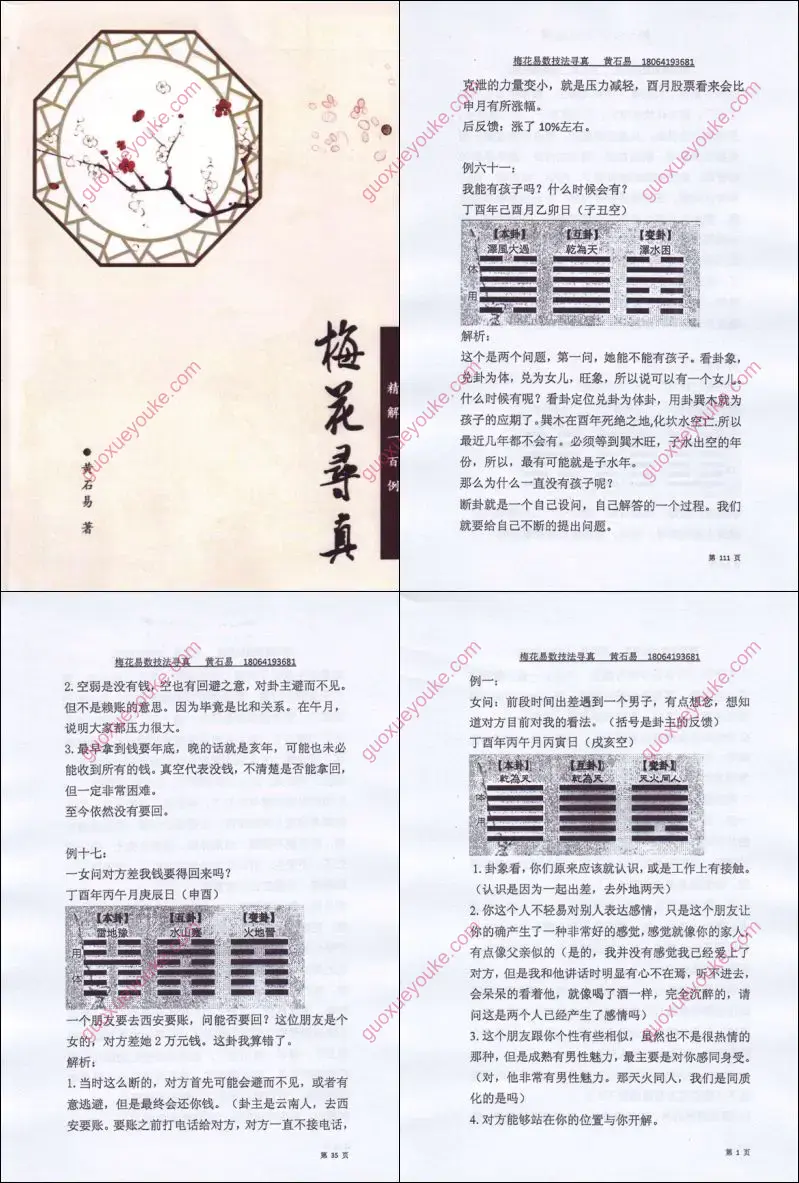 梅花尋真
精解一百例
黄石易 著
guoxueyouke.com
梅花易数技法寻真 黄石易 18064193681
克泄的力量变小，就是压力减轻，酉月股票看来会比
申月有所涨幅。
后反馈：涨了 10%左右。
例六十一：
我能有孩子吗？什么时候会有？
丁酉年己酉月乙卯日（子丑空）
【本卦】 【互卦】 【变卦】
澤風大過 乾為天 澤水困
体
用
解析：
这个是两个问题，第一问，她能不能有孩子。看卦象，
兑卦为体，兑为女儿，旺象，所以说可以有一个女儿。
什么时候有呢？看卦定位兑卦为体卦，用卦巽木就为
孩子的应期了。巽木在酉年死绝之地,化坎水空亡,所以
最近几年都不会有。必须等到巽木旺，子水出空的年
份，所以，最有可能就是子水年。
那么为什么一直没有孩子呢？
断卦就是一个自己设问，自己解答的一个过程。我们
就要给自己不断的提出问题。
第 111 页
梅花易数技法寻真 黄石易 18064193681
2. 空弱是没有钱，空也有回避之意，对卦主避而不见。
但不是赖账的意思。因为毕竟是比和关系。在午月，
说明大家都压力很大。
3. 最早拿到钱要年底，晚的话就是亥年，可能也未必
能收到所有的钱。真空代表没钱，不清楚是否能拿回，
但一定非常困难。
至今依然没有要回。
例十七：
一女问对方差我钱要得回来吗？
丁酉年丙午月庚辰日（申酉）
【本卦】 【互卦】 【变卦】
雷地豫 水山蹇 火地晉
用
体
一个朋友要去西安要账，问能否要回？这位朋友是个
女的，对方差她 2 万元钱。这卦我算错了。
解析：
1. 当时这么断的，对方首先可能会避而不见，或者有
意逃避，但是最终会还你钱。（卦主是云南人，去西
安要账。要账之前打电话给对方，对方一直不接电话，
第 35 页
梅花易数技法寻真 黄石易 18064193681
例一：
女问：前段时间出差遇到一个男子，有点想念，想知
道对方目前对我的看法。（括号是卦主的反馈）
丁酉年丙午月丙寅日（戌亥空）
【本卦】 【互卦】 【变卦】
乾為天 乾為天 天火同人
体
用
1. 卦象看，你们原来应该就认识，或是工作上有接触。
（认识是因为一起出差，去外地两天）
2. 你这个人不轻易对别人表达感情，只是这个朋友让
你的确产生了一种非常好的感觉，感觉就像你的家人，
有点像父亲似的（是的，我并没有感觉我已经爱上了
对方，但是我和他讲话时明显有心不在焉，听不进去，
会呆呆的看着他，就像喝了酒一样，完全沉醉的，请
问这是两个人已经产生了感情吗）
3. 这个朋友跟你个性有些相似，虽然也不是很热情的
那种，但是成熟有男性魅力，最主要是对你感同身受。
（对，他非常有男性魅力。那天火同人，我们是同质
化的是吗）
4. 对方能够站在你的位置与你开解。
第 1 页